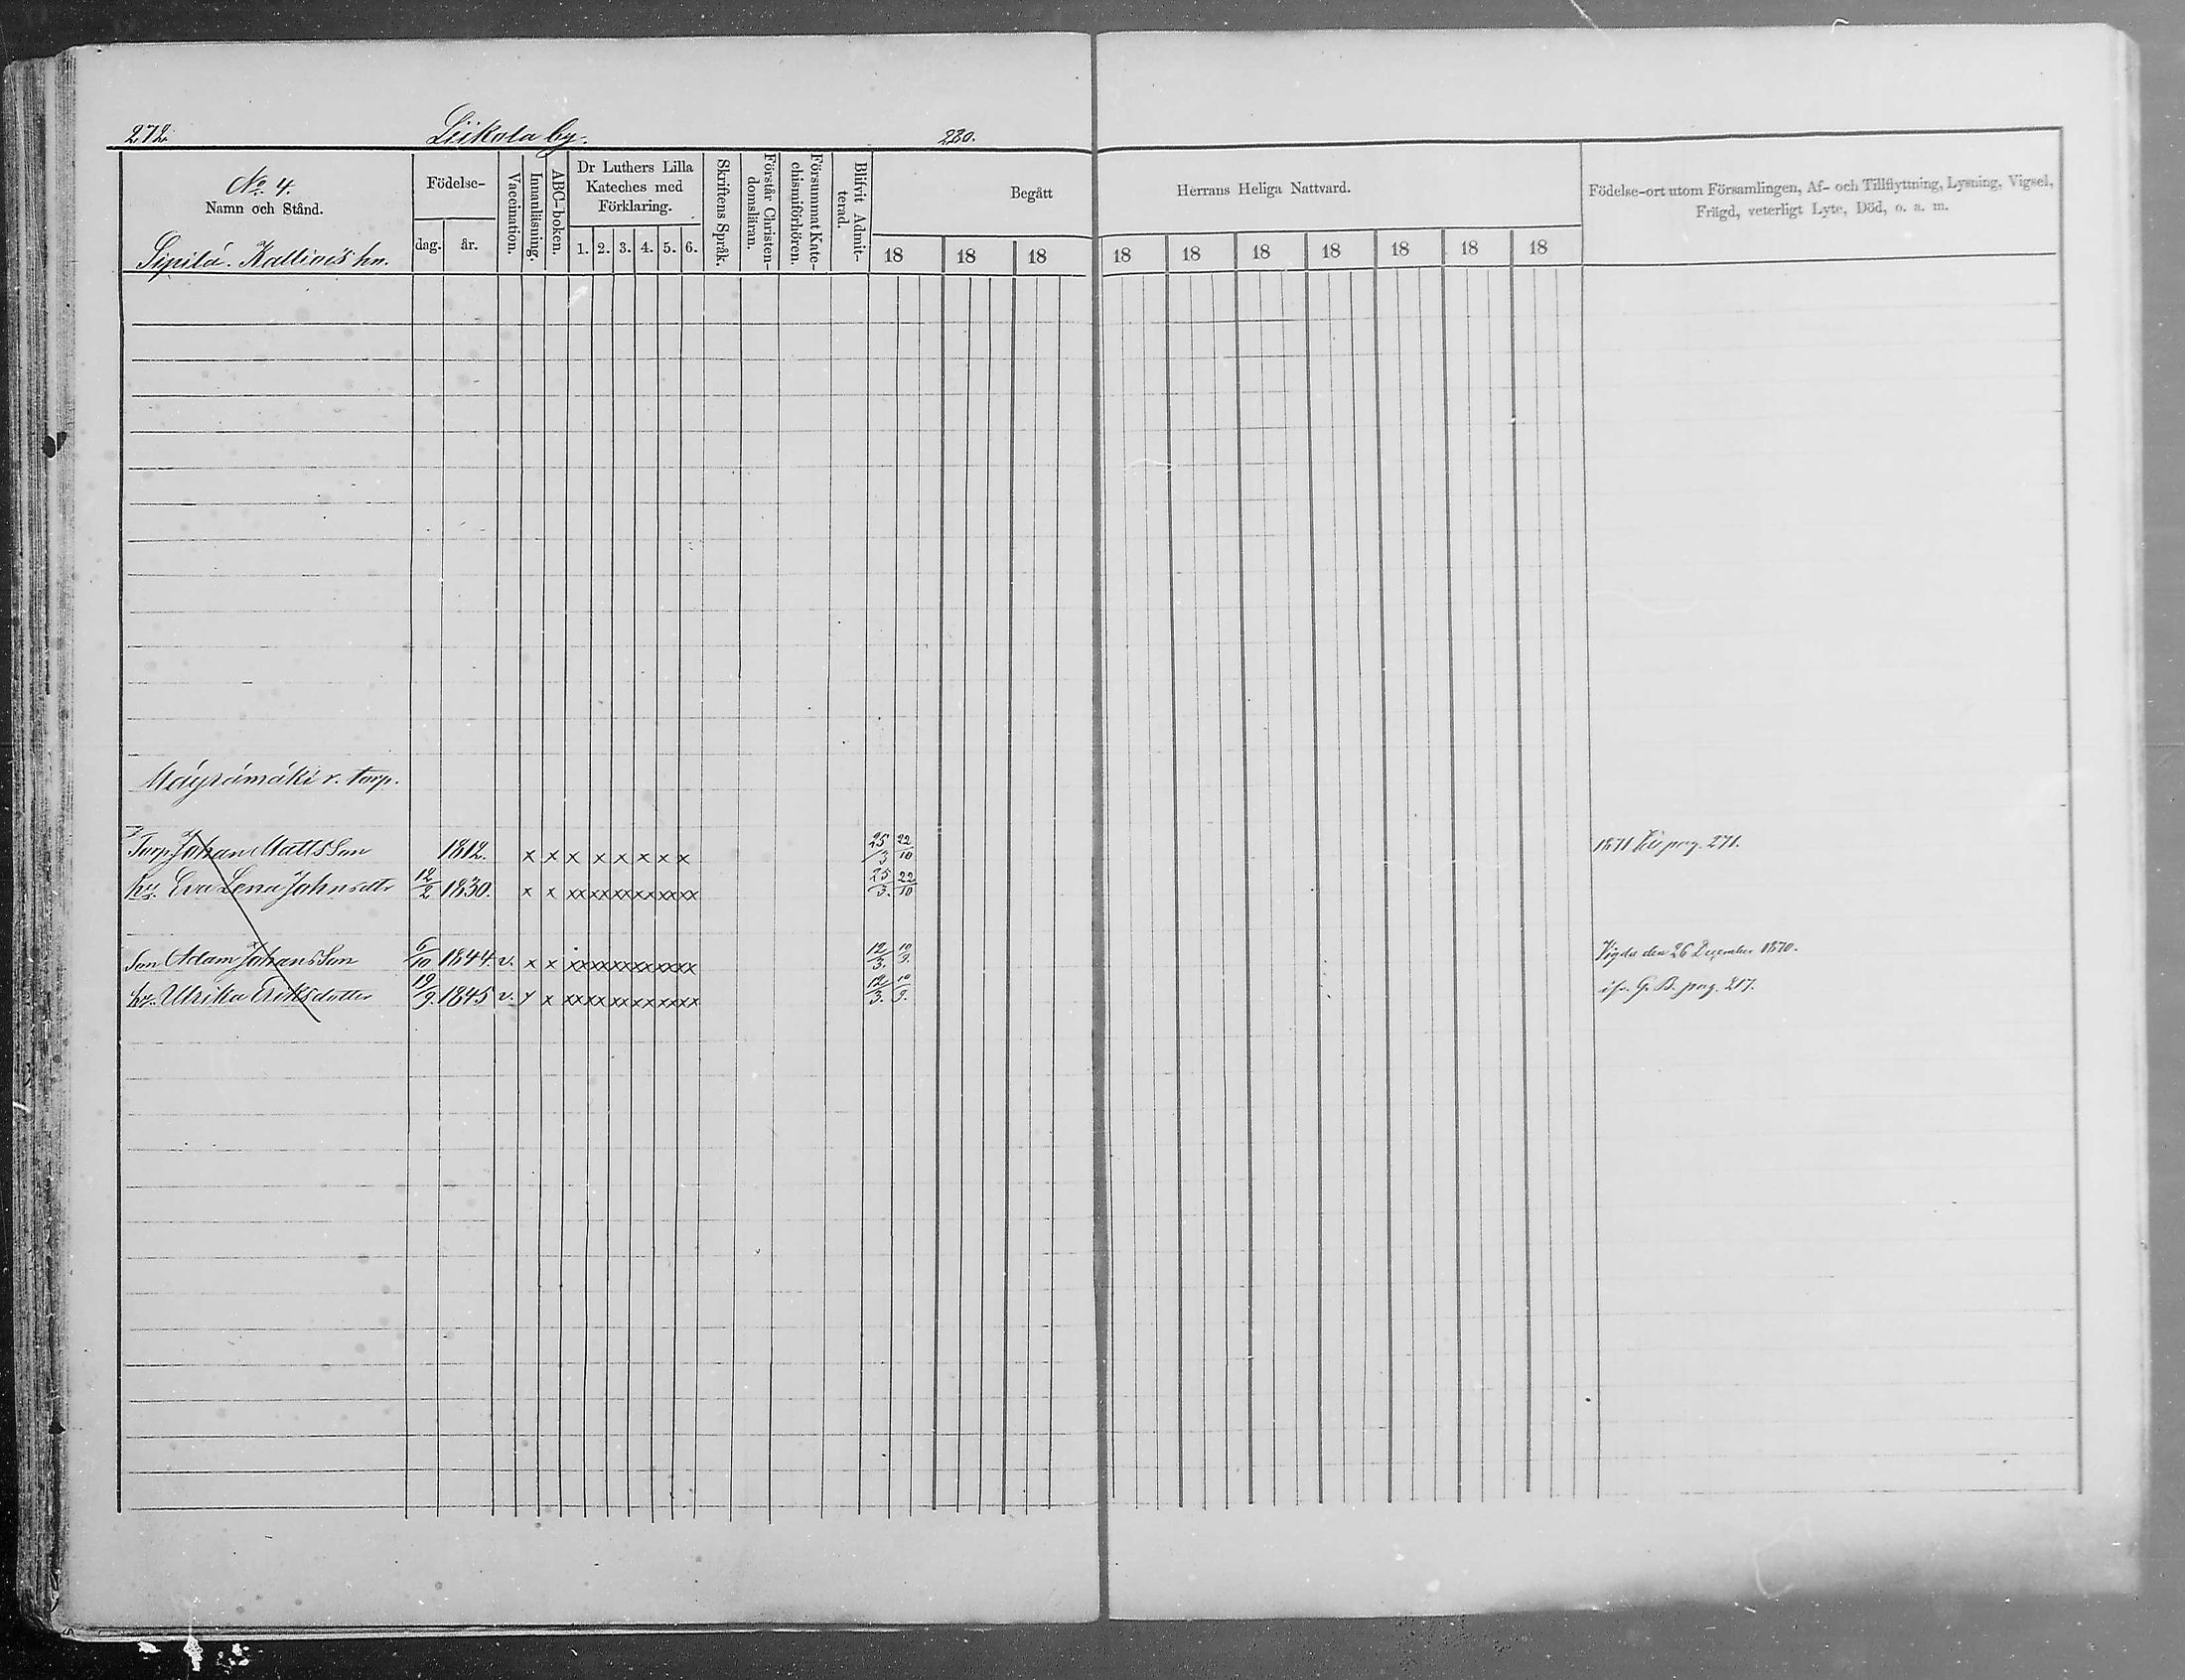 272. Liikola by. 220.
No. 4.
Namn och Stånd.
Sipilä. Kallioi's hn.
Födelse-
dag. år.
Vaccination.
Innanläsning.
ABC-boken.
Dr Luthers Lilla
Kateches med
Förklaring.
1. 2. 3. 4. 5. 6.
Skriftens Språk.
Förstår Christen-
domsläran.
Försummat Kate-
chismiförhören.
Blifvit Admit-
terad.
Begått Herrans Heliga Nattvard.
18 18 18 18 18 18 18 18 18 18
Födelse-ort utom Församlingen, Af- och Tillflyttning, Lysning, Vigsel,
Frägd, veterligt Lyte, Död, o. a. m.
Mäyrämäki r. torp.
Torp. Johan Mattsson 1812. x x x x x x x x 25/3 22/10 1871 pag. 271.
hu. Eva Lena Johnsdtr 12/2 1830. x x xx xx xx xx xx xx 25/3. 22/10
Son Adam Johansson 6/10 1844. v. x x xx xx xx xx xx xx 12/3. 10/9. Vigda den 26 December 1870.
hu. Ulrika Eriksdotter 19/9. 1845 v. x x xx xx xx xx xx xx 12/3. 10/9. G. B. pag. 217.